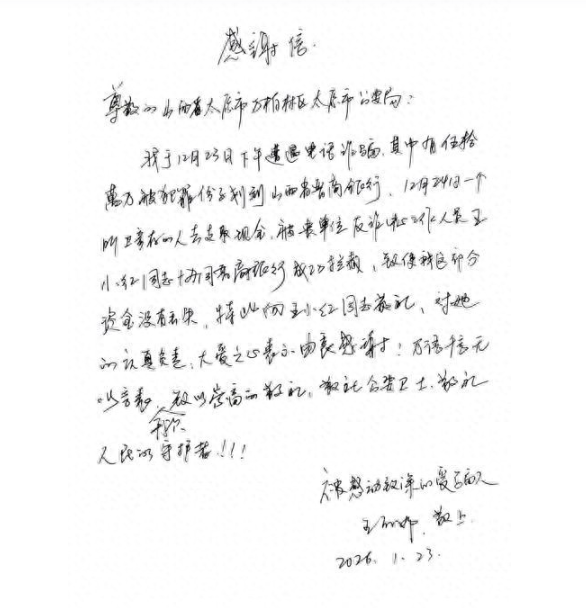 感謝信.
尊敬的山西省太原市万柏林区太原市公安局:
我于12月23日下午遭遇电话诈骗,其中有伍拾
萬元被犯罪份子划到山西省晋商银行,12月24日一个
叫卫 的人去支取现金,被贵单位反诈中心工作人员王
小红同志协同晋商银行成功拦截,致使我这部分
资金没有丢失,特此向王小红同志敬礼,对她
的认真负责,大爱之心表示由衷感謝!万语千言无
以言表,致以崇高的敬礼,敬礼公安卫士,敬礼
人民的守护者!!!
被感动致深的受害人
王 敬上
2026.1.23.